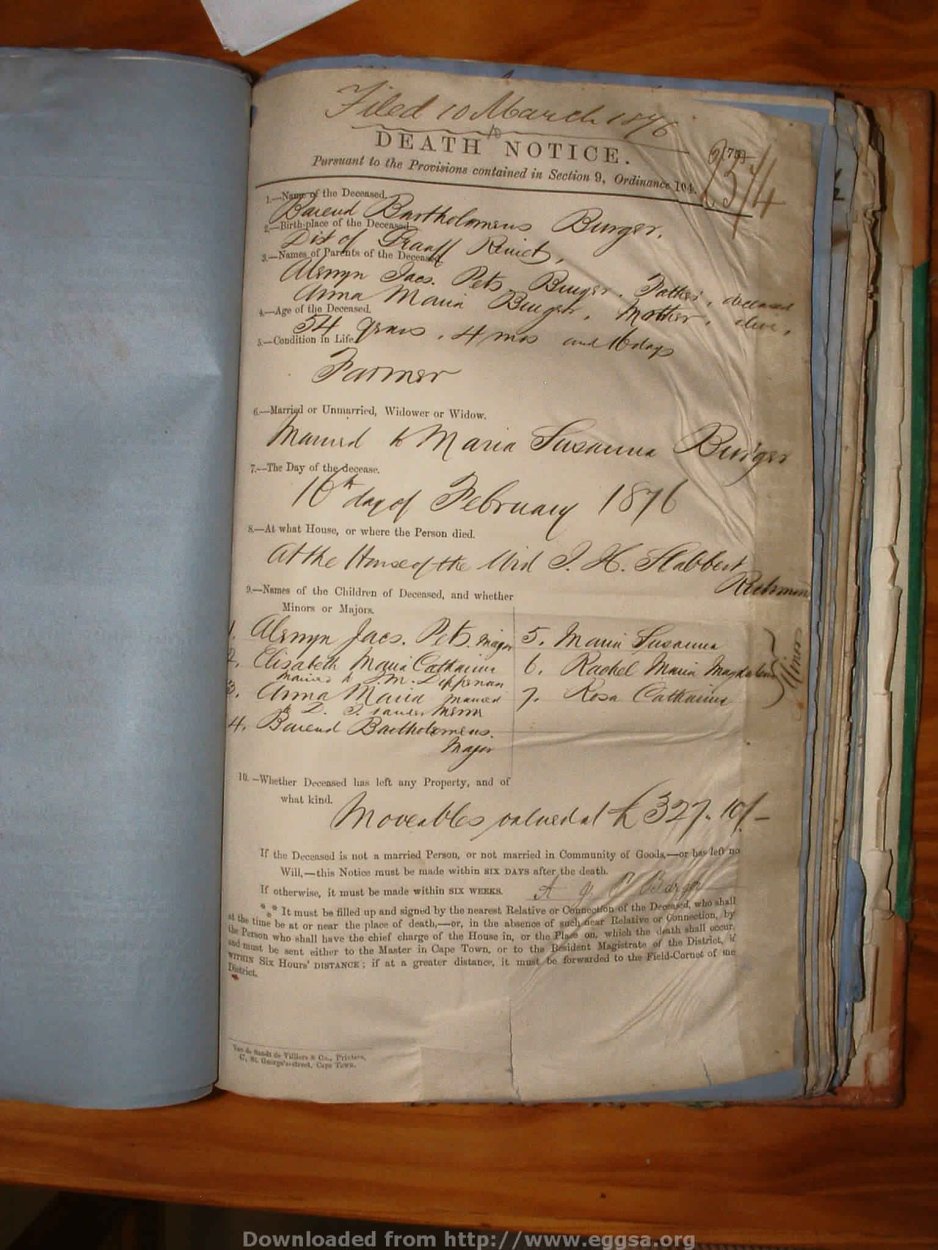 Filed 10 March 1876
DEATH NOTICE.
Pursuant to the Provisions contained in Section 9, Ordinance 104.
2574
1.—Name of the Deceased.
Barend Bartholomeus Burger.
2.—Birth-place of the Deceased.
Dist of Graaff Reinet,
3.—Names of Parents of the Deceased
Alewyn Jacs. Pets Burger, Father, deceased
Anna Maria Burger, Mother, alive,
4.—Age of the Deceased.
54 years, 4 mos and 16 days
5.—Condition in Life.
Farmer
6.—Married or Unmarried, Widower or Widow.
Married to Maria Susanna Burger
7.—The Day of the decease.
16th day of February 1876
8.—At what House, or where the Person died.
At the House of the Wid J. H. Slabbert
Richmond
9.—Names of the Children of Deceased, and whether
Minors or Majors.
1. Alewyn Jacs. Pets. major
2. Elisabeth Maria Catharina
married to J. M.
3. Anna Maria married
to D.
4. Barend Bartholomeus.
Major
5. Maria Susanna
6. Rachel Maria Magdalena
7. Rosa Catharina
Minors
10.—Whether Deceased has left any Property, and of
what kind.
Moveables valued at £327.10/-
If the Deceased is not a married Person, or not married in Community of Goods,—or has left no
Will,—this Notice must be made within SIX DAYS after the death.
If otherwise, it must be made within SIX WEEKS.
A J P Burger
*** It must be filled up and signed by the nearest Relative or Connection of the Deceased, who shall
at the time be at or near the place of death,—or, in the absence of such near Relative or Connection, by
the Person who shall have the chief charge of the House in, or the Place on, which the death shall occur,
and must be sent either to the Master in Cape Town, or to the Resident Magistrate of the District, if
WITHIN Six Hours' DISTANCE; if at a greater distance, it must be forwarded to the Field-Cornet of the
District.
Van de Sandt de Villiers & Co., Printers,
47, St. George's-street, Cape Town.
Downloaded from http://www.eggsa.org